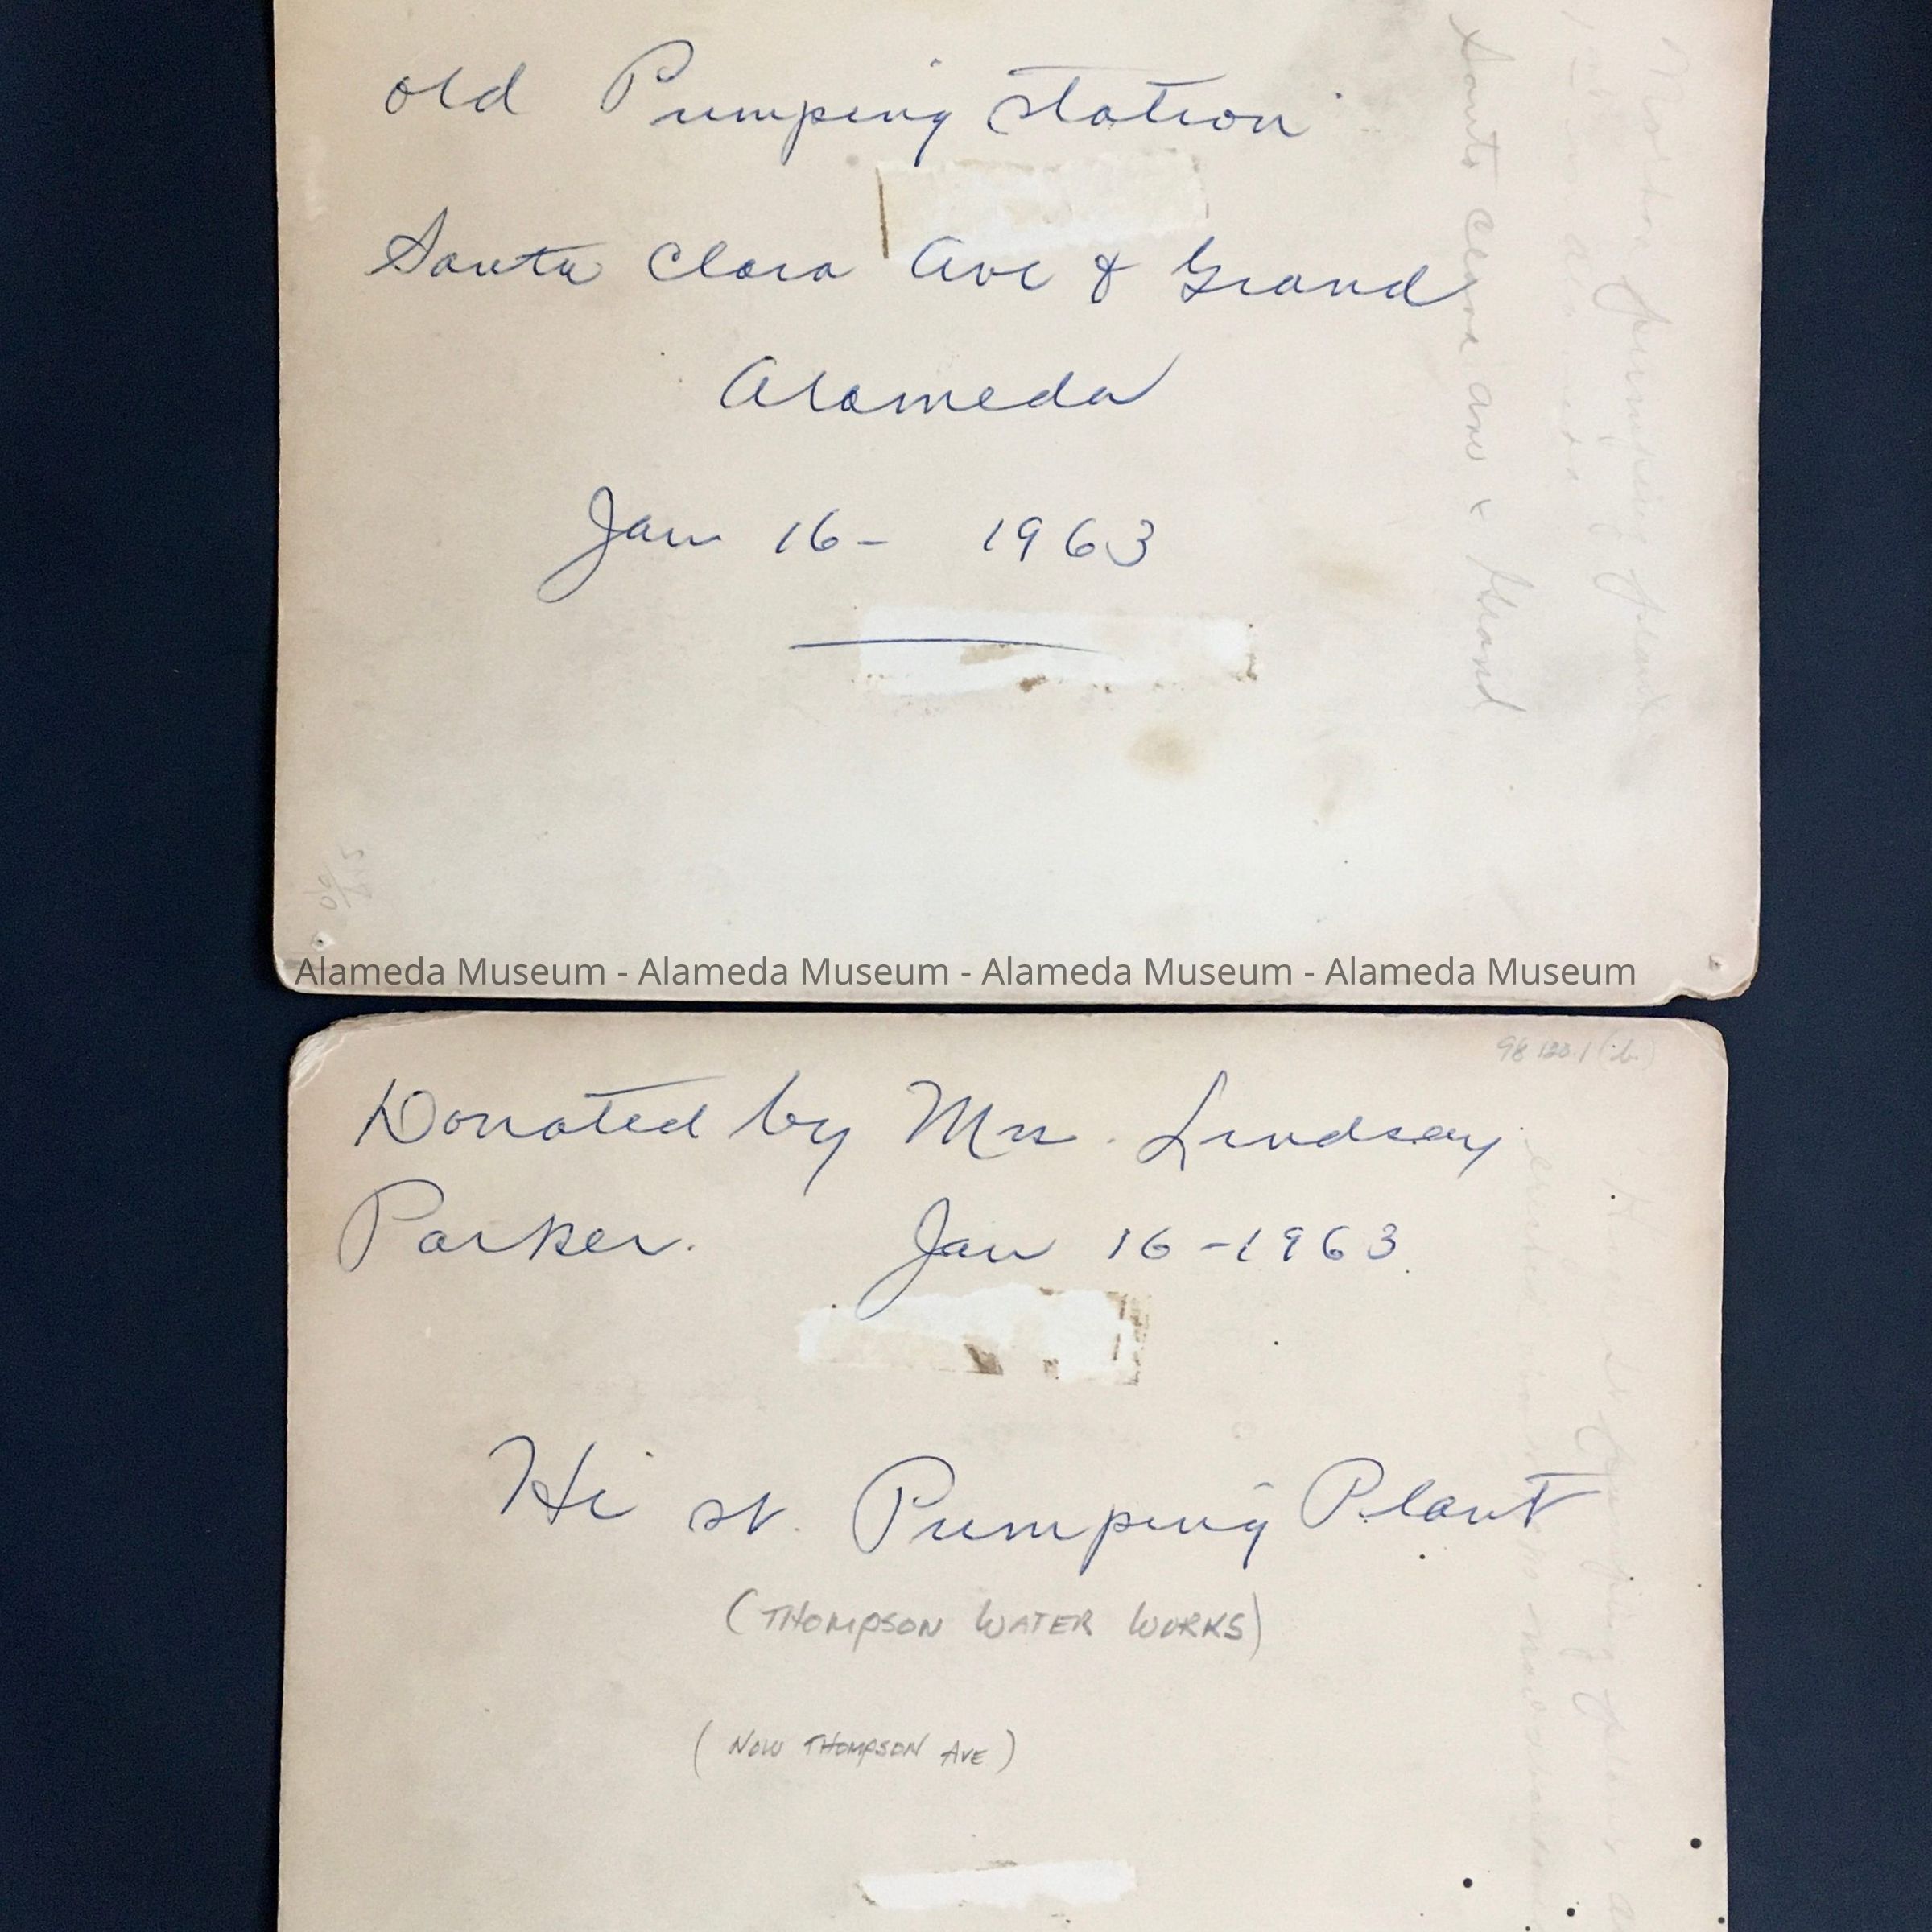 old Pumping Station
Santa Clara Ave & Grand
Alameda
Jan 16- 1963
Santa Clara ave & Grand
pumping plant
Alameda Museum - Alameda Museum - Alameda Museum - Alameda Museum
Donated by Mrs. Lindsay
Parker. Jan 16-1963
Hi st. Pumping Plant
(THOMPSON WATER WORKS)
(NOW THOMPSON AVE)